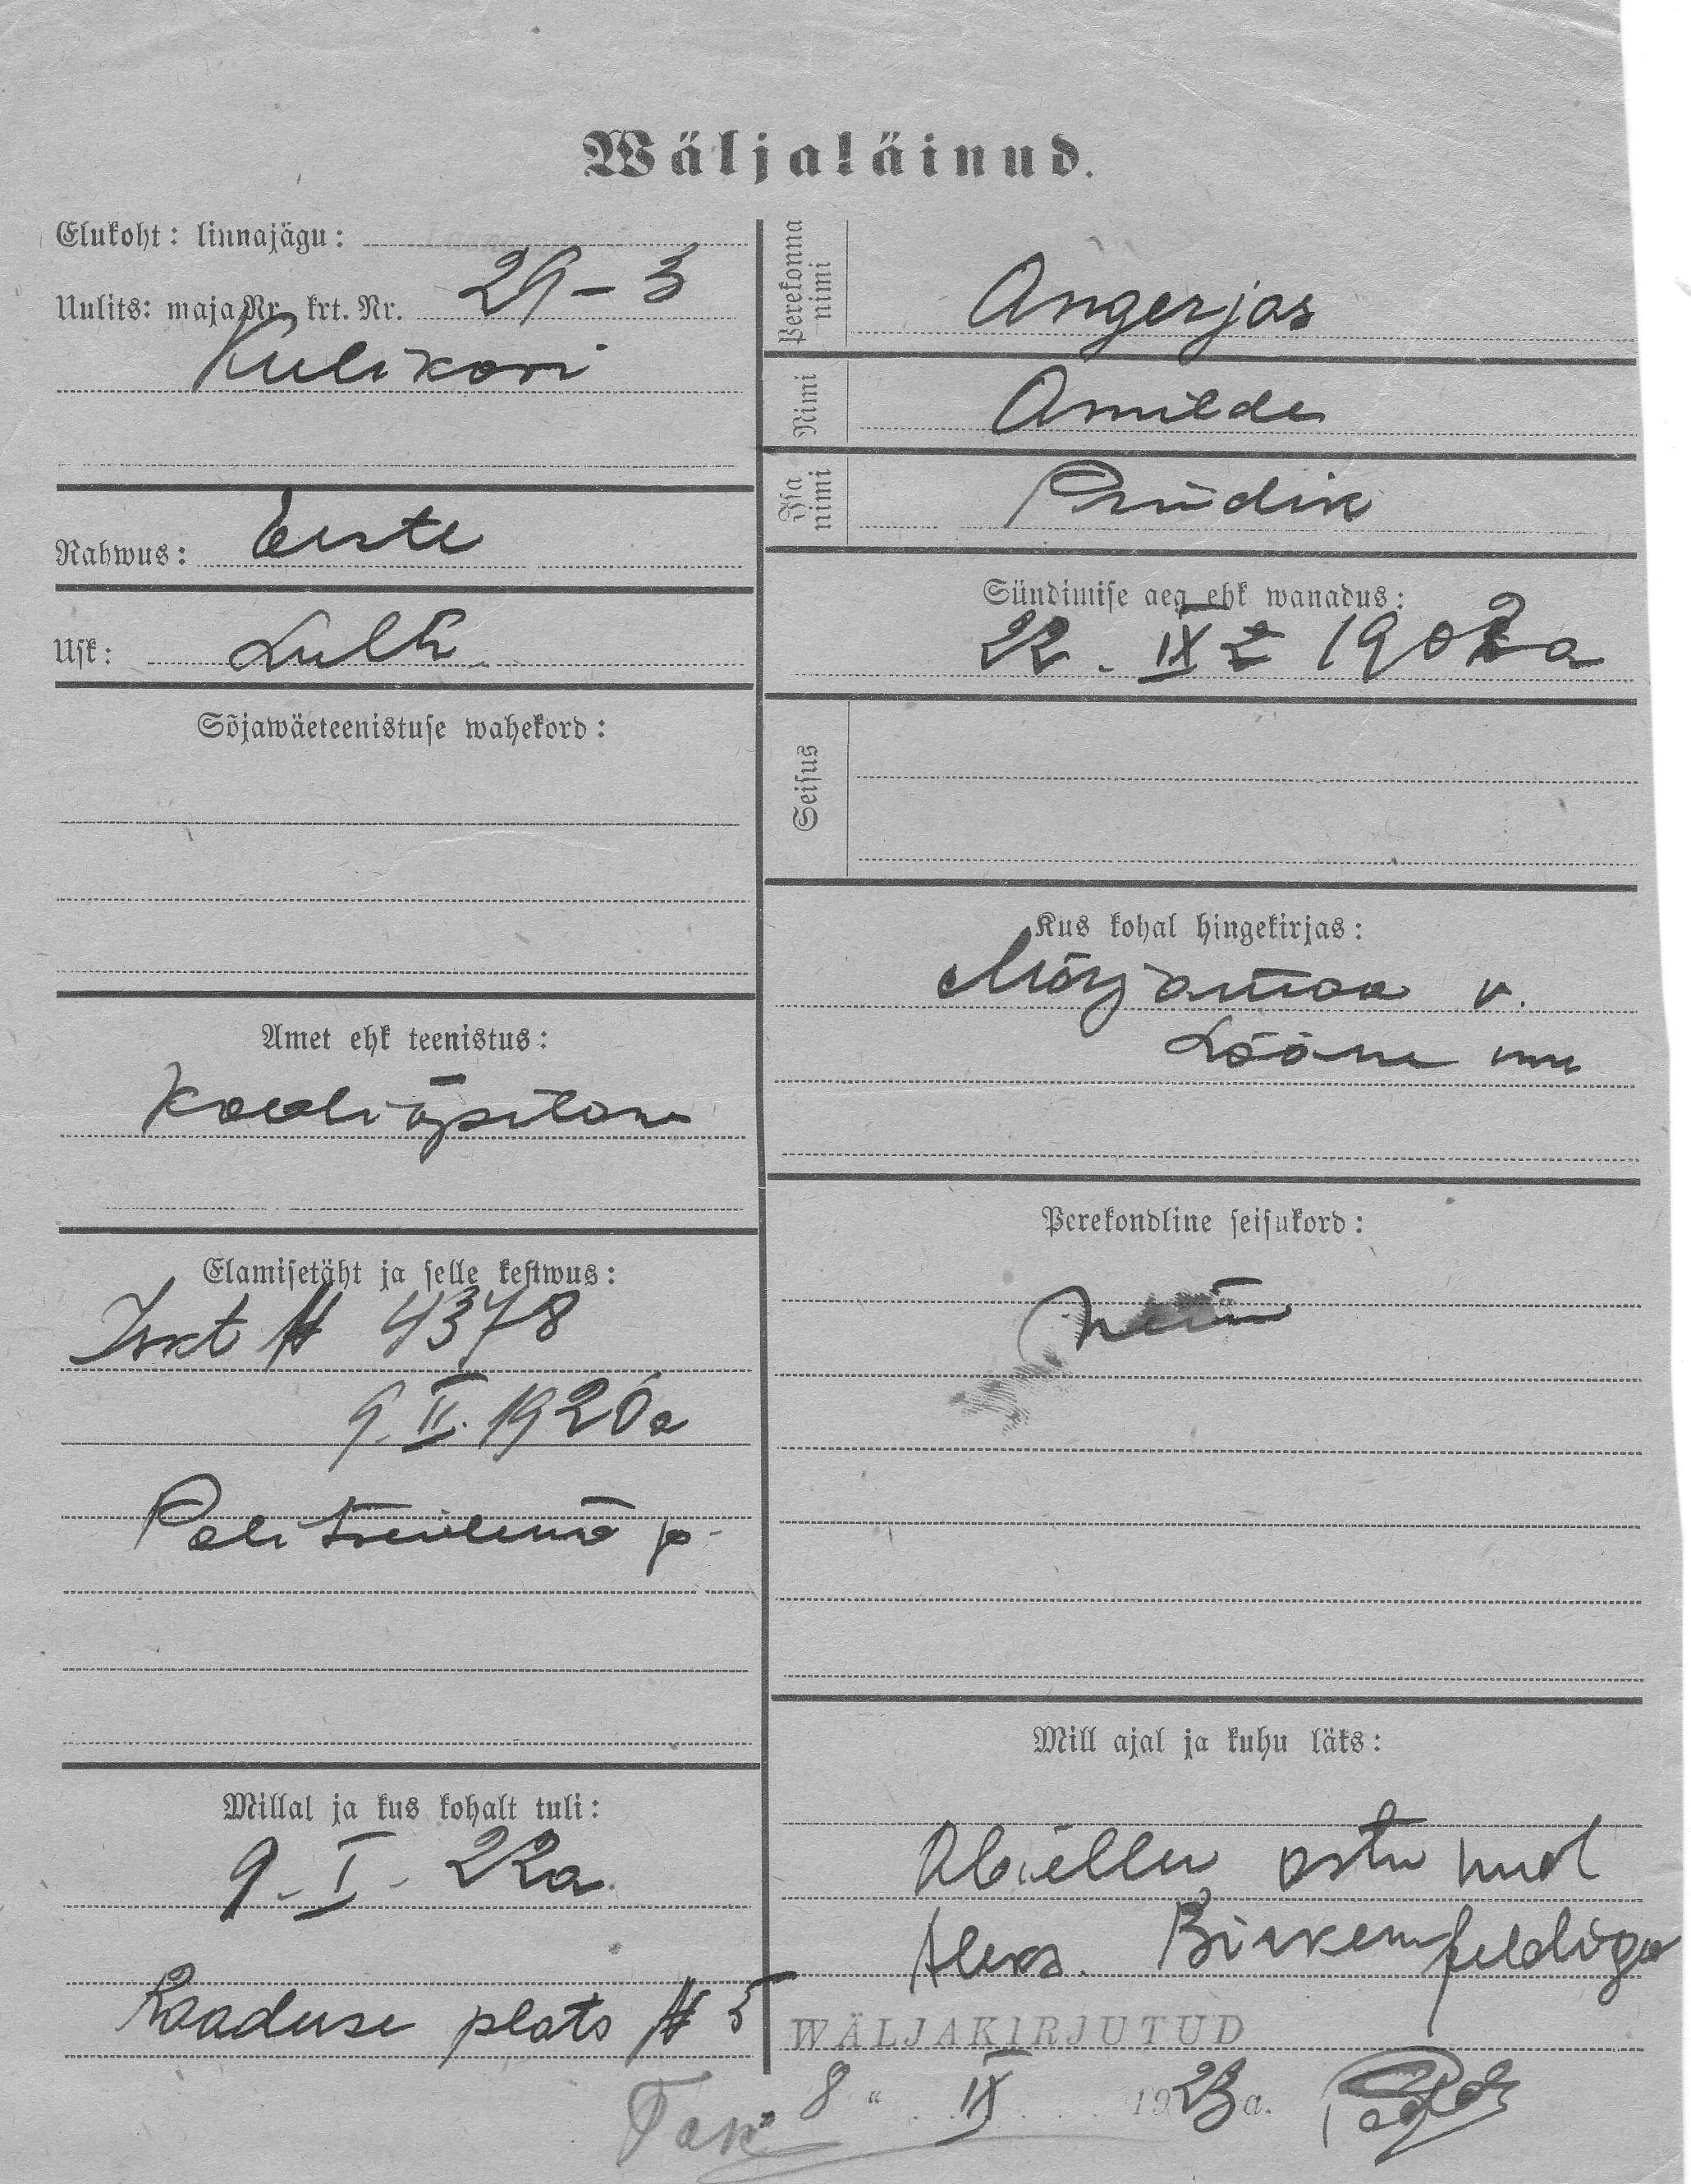 Wäljaläinud.
Elukoht: linnajägu:
Uulits: maja Nr. krt. Nr. 29 – 3
Kulikovi
Rahwus: Eeste
Usk: Luth
Sõjawäeteenistuse wahekord:
Amet ehk teenistus:
Kooliõpilane
Elamisetäht ja selle kestwus:
Iskt № 4378
9. II. 1920a
Politseiülema p.
Millal ja kus kohalt tuli:
9. I. 22a.
Raaduse plats № 5
Perekonna nimi
Angerjas
Nimi
Amilde
Isa nimi
Priidik
Sündimise aeg ehk wanadus:
22. IX 1902a
Seisus
Kus kohal hingekirjas:
Märjamaa v.
Lääne mm
Perekondline seisukord:
Mill ajal ja kuhu läks:
Abiellu astunud
Aleks. Birkenfeldiga
WÄLJAKIRJUTUD
8 " IX 1923 a.